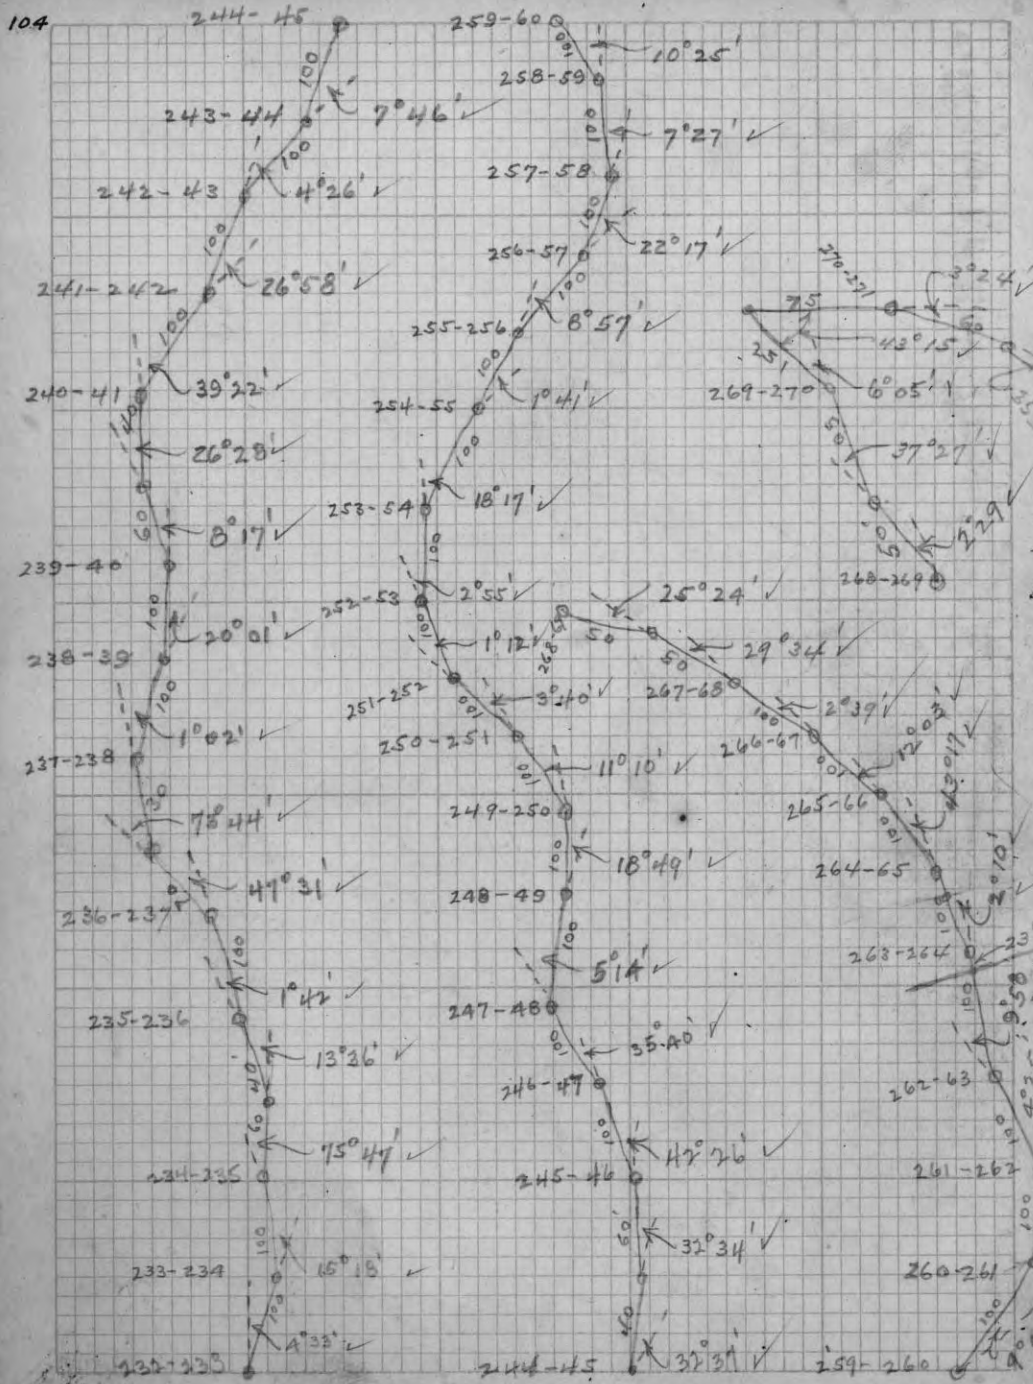 104
244-45
100
7°46' ✓
243-44
100
4°26' ✓
242-43
100
26°58' ✓
241-242
100
39°22' ✓
240-41
40
26°28' ✓
60
8°17' ✓
239-40
100
20°01' ✓
238-39
100
1°02' ✓
237-238
30
44' ✓
47°31' ✓
236-237
100
1°42' ✓
235-236
13°36' ✓
40
60
75°47' ✓
234-235
100
15°18' ✓
233-234
100
4°33' ✓
232-233
259-60
100
10°25'
258-59
100
7°27' ✓
257-58
100
22°17' ✓
256-57
100
8°57' ✓
255-256
100
1°41' ✓
254-55
100
18°17' ✓
253-54
100
2°55' ✓
252-53
100
1°12' ✓
251-252
3°40' ✓
100
250-251
100
11°10' ✓
249-250
100
18°49' ✓
248-49
100
5°14' ✓
247-48
100
35°40' ✓
246-47
100
42°26' ✓
245-46
60
32°34' ✓
40
244-45
270-271
3°24' ✓
75
43°15' ✓
25'
269-270
6°05'
50
37°27' ✓
50'
268-269
25°24' ✓
50
50
29°34' ✓
267-68
100
2°39' ✓
266-67
100
265-66
100
264-65
100
2°10'
263-264
23
100
9°58'
262-63
100
261-262
100
260-261
100
259-260